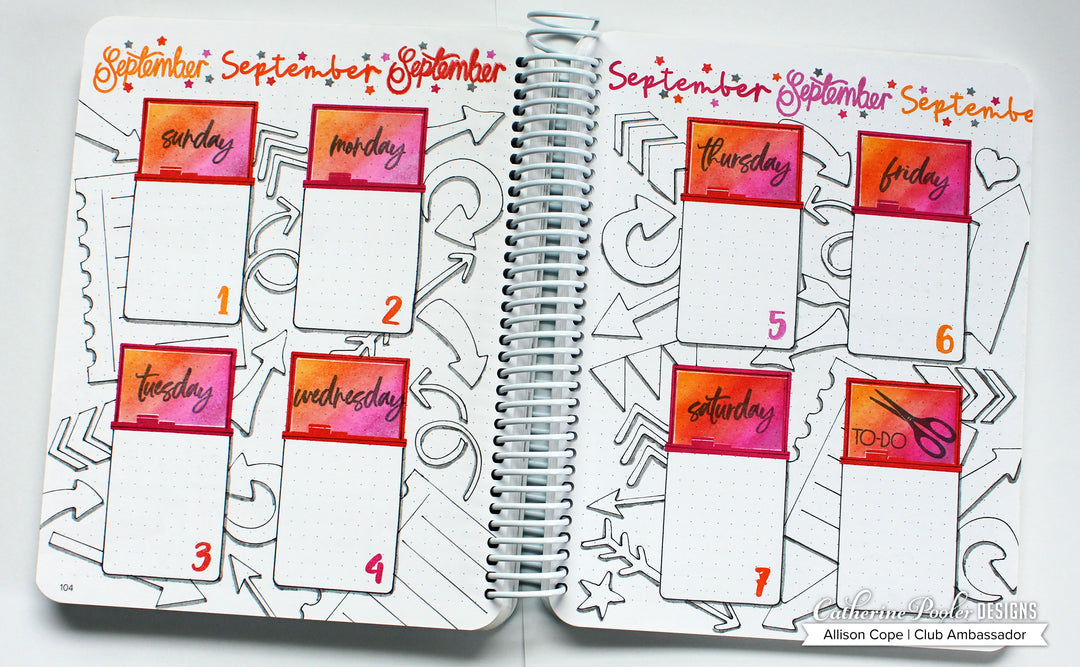 September September September
sunday
monday
1
2
tuesday
wednesday
3
4
104
September September Septembe
thursday
friday
5
6
saturday
TO-DO
7
Catherine Pooler DESIGNS
Allison Cope | Club Ambassador